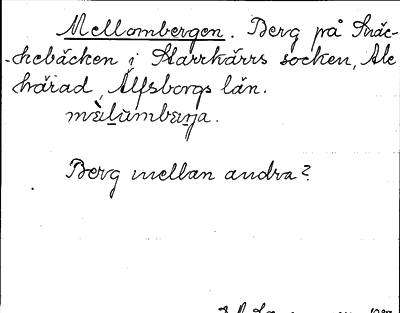 Mellombergen. Berg på Skräc-
-hebäcken i Starrkärrs socken, Ale
härad, Älfsborgs län.
Berg mellan andra?